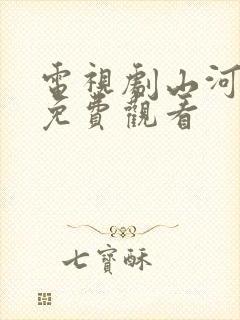 電視劇山河
免費觀看
七寶酥